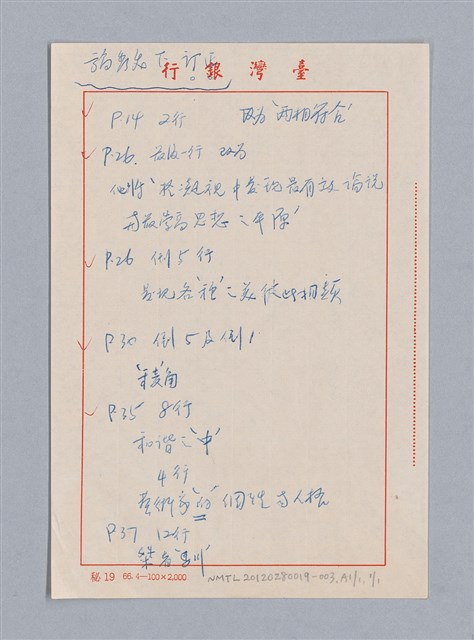 請勞先下訂正。
行銀灣臺
P.14 2行 改為「兩相符合」
P.26. 最後一行 改為
他將「於凝視中发现最有立論说
与最崇高思想之平原」
P.26 倒5行
呈现各「種」之美彼此相類
P.30 倒5及倒1
「棱」角
P.35 8行
和谐之「中」
4行
藝術家「的」個性与人格
P37 12行
秘19 66.4—100×2,000
NMTL20120280019-003.A1/1.1/1